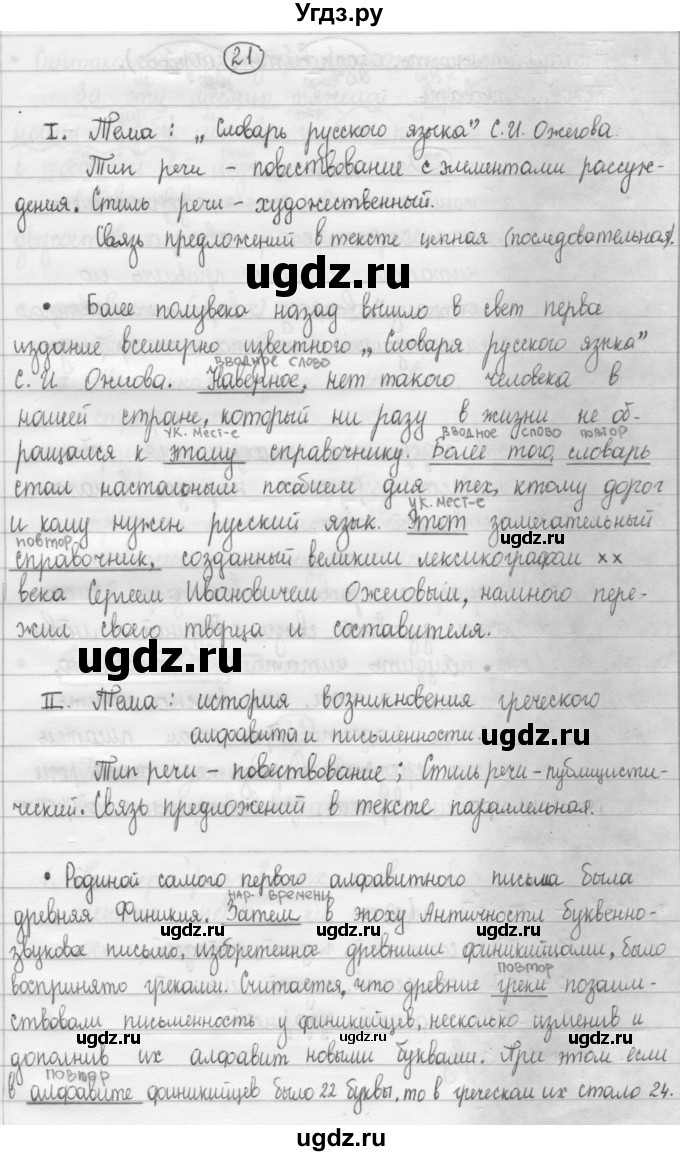 Угдз.ру
21
I. Тема: „Словарь русского языка" С.И. Ожегова.
Тип речи – повествование с элементами рассуж-
дения. Стиль речи – художественный.
Связь предложений в тексте цепная (последовательная).
ugdz.ru
• Более полувека назад вышло в свет перво
издание всемирно известного „Словаря русского языка"
вводное слово
С. И Ожегова. Наверное, нет такого человека в
нашей стране, который ни разу в жизни не об-
ук. мест-е вводное слово повтор
ращался к этому справочнику. Более того, словарь
стал настольным пособием для тех, кому дорог
ук. мест-е
и кому нужен русский язык. Этот замечательный
повтор
справочник, созданный великим лексикографом XX
века Сергеем Ивановичем Ожеговым, намного пере-
жил своего творца и составителя.
ugdz.ru
II. Тема: история возникновения греческого
алфавита и письменности
ugdz.ru
Тип речи – повествование; Стиль речи – публицисти-
ческий. Связь предложений в тексте параллельная.
• Родиной самого первого алфавитного письма была
нар. времени
древняя Финикия. Затем в эпоху Античности буквенно-
ugdz.ru ugdz.ru ugdz.ru
звуковое письмо, изобретенное древними финикийцами, было
повтор
воспринято греками. Считается, что древние греки позаим-
ствовали письменность у финикийцев, несколько изменив и
ugdz.ru ugdz.ru ugdz.ru
дополнив их алфавит новыми буквами. При этом если
повтор
в алфавите финикийцев было 22 буквы, то в греческом их стало 24.
ugdz.ru